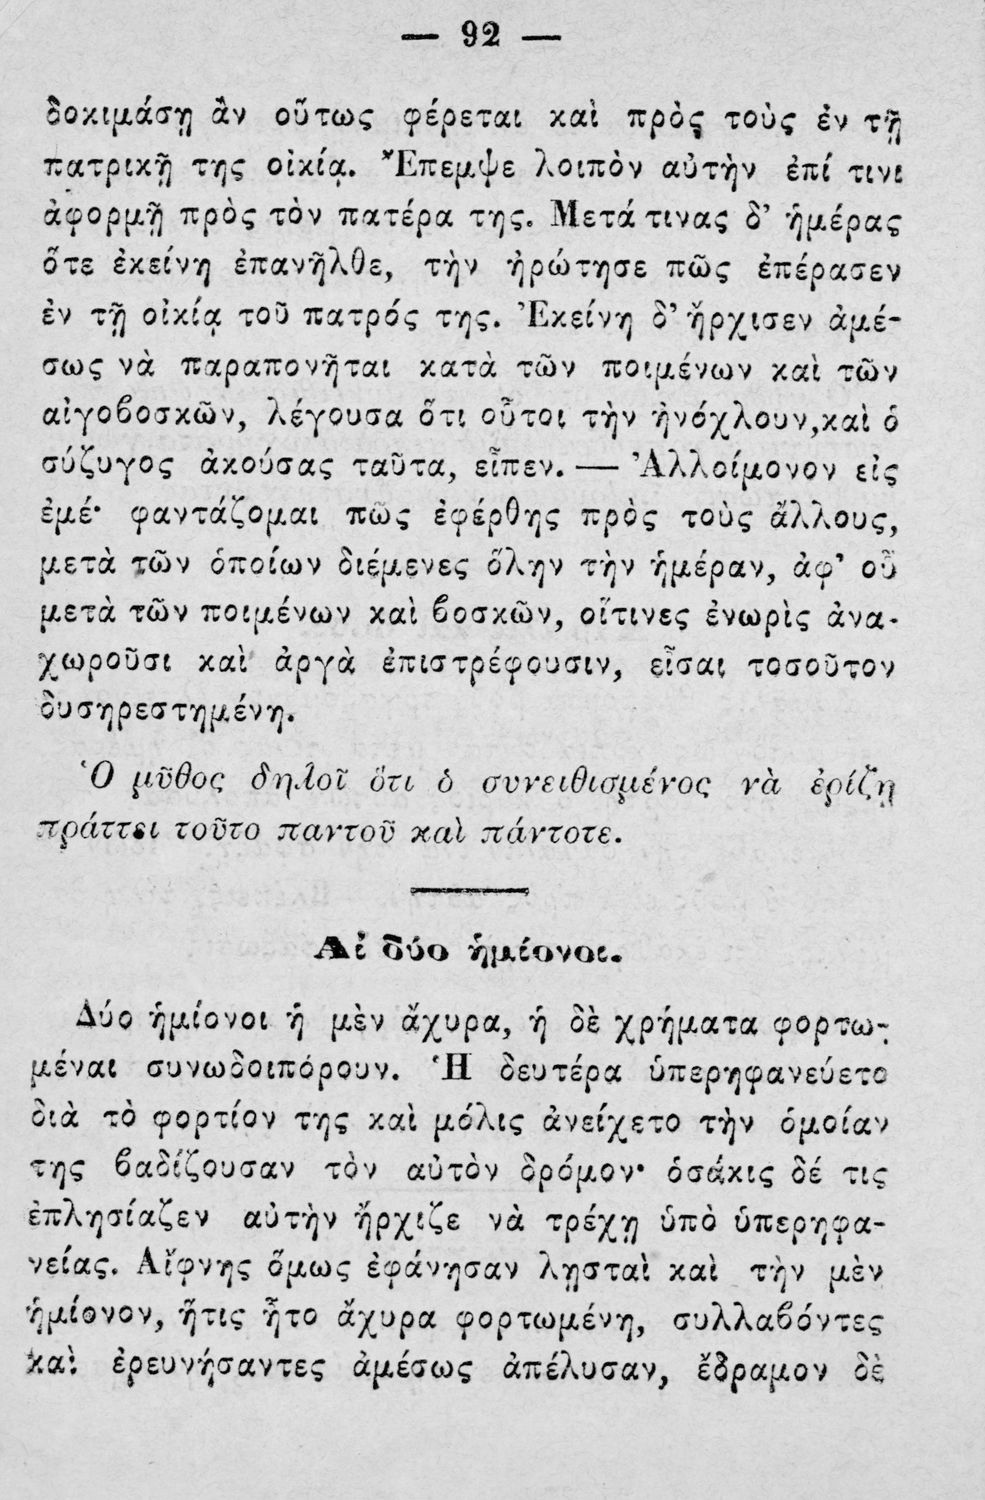 — 92 —
δοκιμάσῃ ἂν οὕτως φέρεται καὶ πρὸς τοὺς ἐν τῇ
πατρικῇ της οἰκίᾳ. Ἔπεμψε λοιπὸν αὐτὴν ἐπί τινι
ἀφορμῇ πρὸς τὸν πατέρα της. Μετά τινας δ’ ἡμέρας
ὅτε ἐκείνη ἐπανῆλθε, τὴν ἠρώτησε πῶς ἐπέρασεν
ἐν τῇ οἰκίᾳ τοῦ πατρός της. Ἐκείνη δ’ ἤρχισεν ἀμέ-
σως νὰ παραπονῆται κατὰ τῶν ποιμένων καὶ τῶν
αἰγοβοσκῶν, λέγουσα ὅτι οὗτοι τὴν ἠνόχλουν, καὶ ὁ
σύζυγος ἀκούσας ταῦτα, εἶπεν. — Ἀλλοίμονον εἰς
ἐμέ· φαντάζομαι πῶς ἐφέρθης πρὸς τοὺς ἄλλους,
μετὰ τῶν ὁποίων διέμενες ὅλην τὴν ἡμέραν, ἀφ’ οὗ
μετὰ τῶν ποιμένων καὶ βοσκῶν, οἵτινες ἐνωρὶς ἀνα-
χωροῦσι καὶ ἀργὰ ἐπιστρέφουσιν, εἶσαι τοσοῦτον
δυσηρεστημένη.
Ὁ μῦθος δηλοῖ ὅτι ὁ συνειθισμένος νὰ ἐρίζῃ
πράττει τοῦτο παντοῦ καὶ πάντοτε.
Αἱ δύο ἡμίονοι.
Δύο ἡμίονοι ἡ μὲν ἄχυρα, ἡ δὲ χρήματα φορτω-
μέναι συνωδοιπόρουν. Ἡ δευτέρα ὑπερηφανεύετο
διὰ τὸ φορτίον της καὶ μόλις ἀνείχετο τὴν ὁμοίαν
της βαδίζουσαν τὸν αὐτὸν δρόμον· ὁσάκις δέ τις
ἐπλησίαζεν αὐτὴν ἤρχιζε νὰ τρέχῃ ὑπὸ ὑπερηφα-
νείας. Αἴφνης ὅμως ἐφάνησαν λῃσταὶ καὶ τὴν μὲν
ἡμίονον, ἥτις ἦτο ἄχυρα φορτωμένη, συλλαβόντες
καὶ ἐρευνήσαντες ἀμέσως ἀπέλυσαν, ἔδραμον δὲ